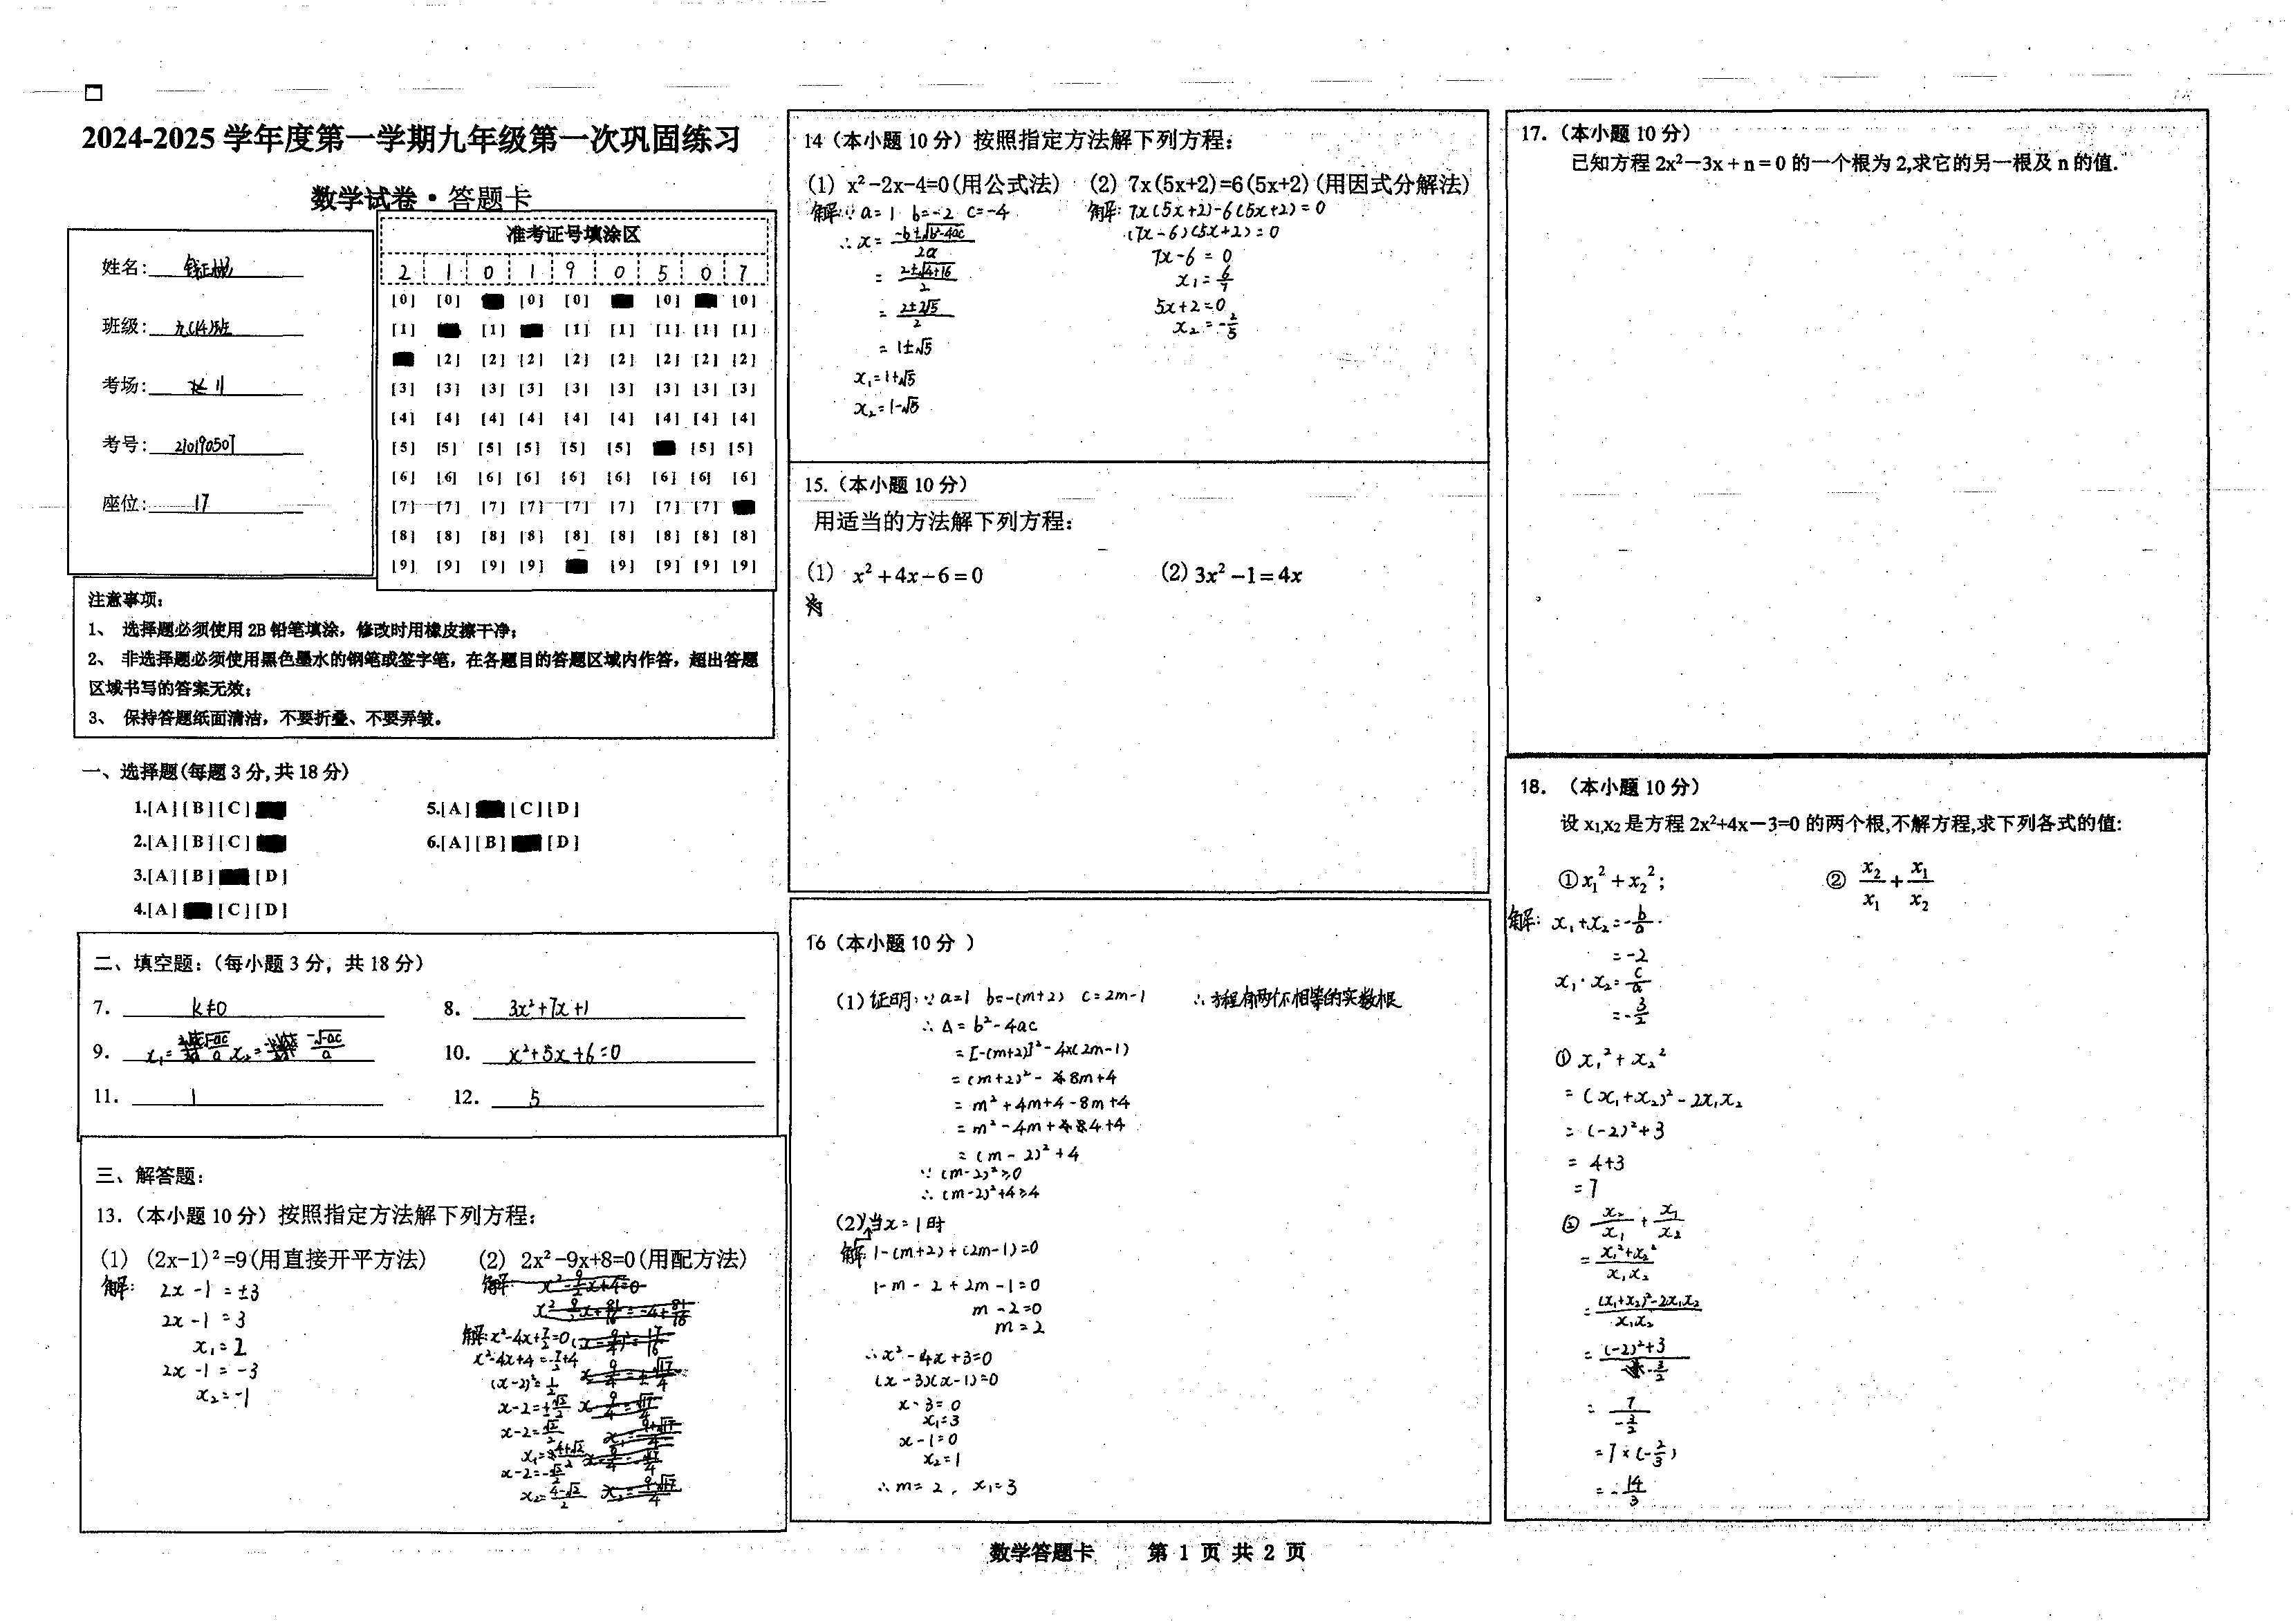 2024-2025学年度第一学期九年级第一次巩固练习
数学试卷·答题卡
姓名:
班级: 九(4)班
考场: 11
考号: 210190507
座位: 17
准考证号填涂区
2 1 0 1 9 0 5 0 7
[0] [0] [0] [0] [0] [0]
[1] [1] [1] [1] [1] [1] [1]
[2] [2] [2] [2] [2] [2] [2] [2]
[3] [3] [3] [3] [3] [3] [3] [3] [3]
[4] [4] [4] [4] [4] [4] [4] [4] [4]
[5] [5] [5] [5] [5] [5] [5] [5]
[6] [6] [6] [6] [6] [6] [6] [6] [6]
[7] [7] [7] [7] [7] [7] [7] [7]
[8] [8] [8] [8] [8] [8] [8] [8] [8]
[9] [9] [9] [9] [9] [9] [9] [9]
注意事项:
1、 选择题必须使用2B铅笔填涂,修改时用橡皮擦干净;
2、 非选择题必须使用黑色墨水的钢笔或签字笔,在各题目的答题区域内作答,超出答题
区域书写的答案无效;
3、 保持答题纸面清洁,不要折叠、不要弄皱。
一、选择题(每题3分,共18分)
1.[A][B][C]
5.[A] [C][D]
2.[A][B][C]
6.[A][B] [D]
3.[A][B] [D]
4.[A] [C][D]
二、填空题:(每小题3分,共18分)
7. k≠0
8. 3x²+7x+1
9. x₁=√-ac/a x₂=-√-ac/a
10. x²+5x+6=0
11. 1
12. 5
三、解答题:
13.(本小题10分)按照指定方法解下列方程:
(1) (2x-1)²=9(用直接开平方法)
解: 2x-1=±3
2x-1=3
x₁=2
2x-1=-3
x₂=-1
(2) 2x²-9x+8=0(用配方法)
解:x²-4x+7/2=0
x²-4x+4=-7/2+4
(x-2)²=1/2
x-2=±√2/2
x-2=√2/2
x₁=4+√2/2
x-2=-√2/2
x₂=4-√2/2
14(本小题10分)按照指定方法解下列方程:
(1) x²-2x-4=0(用公式法)
解:∵a=1 b=-2 c=-4
∴x=-b±√b²-4ac/2a
=2±√4+16/2
=2±2√5/2
=1±√5
x₁=1+√5
x₂=1-√5
(2) 7x(5x+2)=6(5x+2)(用因式分解法)
解:7x(5x+2)-6(5x+2)=0
(7x-6)(5x+2)=0
7x-6=0
x₁=6/7
5x+2=0
x₂=-2/5
15.(本小题10分)
用适当的方法解下列方程:
(1) x²+4x-6=0
(2)3x²-1=4x
16(本小题10分 )
(1)证明:∵a=1 b=-(m+2) c=2m-1
∴Δ=b²-4ac
=[-(m+2)]²-4×(2m-1)
=(m+2)²-8m+4
=m²+4m+4-8m+4
=m²-4m+4+4
=(m-2)²+4
∵(m-2)²≥0
∴(m-2)²+4≥4
∴方程有两个不相等的实数根
(2)当x=1时
解:1-(m+2)+(2m-1)=0
1-m-2+2m-1=0
m-2=0
m=2
∴x²-4x+3=0
(x-3)(x-1)=0
x-3=0
x₁=3
x-1=0
x₂=1
∴m=2, x₁=3
17.(本小题10分)
已知方程2x²-3x+n=0的一个根为2,求它的另一根及n的值.
18. (本小题10分)
设x₁,x₂是方程2x²+4x-3=0的两个根,不解方程,求下列各式的值:
①x₁²+x₂²;
② x₂/x₁+x₁/x₂
解: x₁+x₂=-b/a
=-2
x₁·x₂=c/a
=-3/2
① x₁²+x₂²
=(x₁+x₂)²-2x₁x₂
=(-2)²+3
=4+3
=7
② x₂/x₁+x₁/x₂
=x₁²+x₂²/x₁x₂
=(x₁+x₂)²-2x₁x₂/x₁x₂
=(-2)²+3/-3/2
=7/-3/2
=7×(-2/3)
=-14/3
数学答题卡 第 1 页 共 2 页